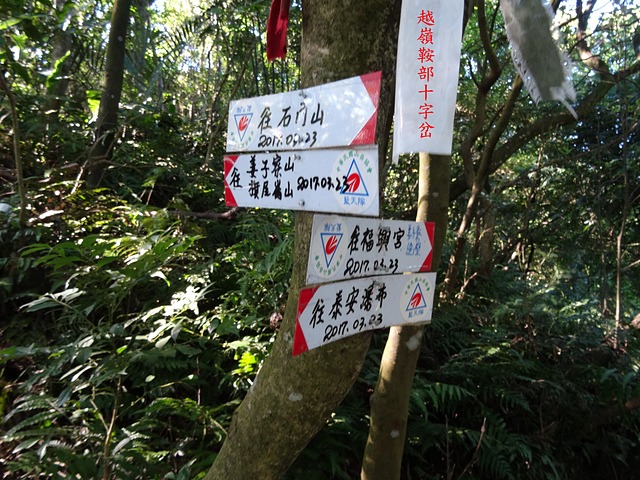 越嶺鞍部十字岔
往石門山
2017.03.23
往
姜子寮山
旗尾崙山
2017.03.23
往福興宮
2017.03.23
往泰安瀑布
2017.03.23